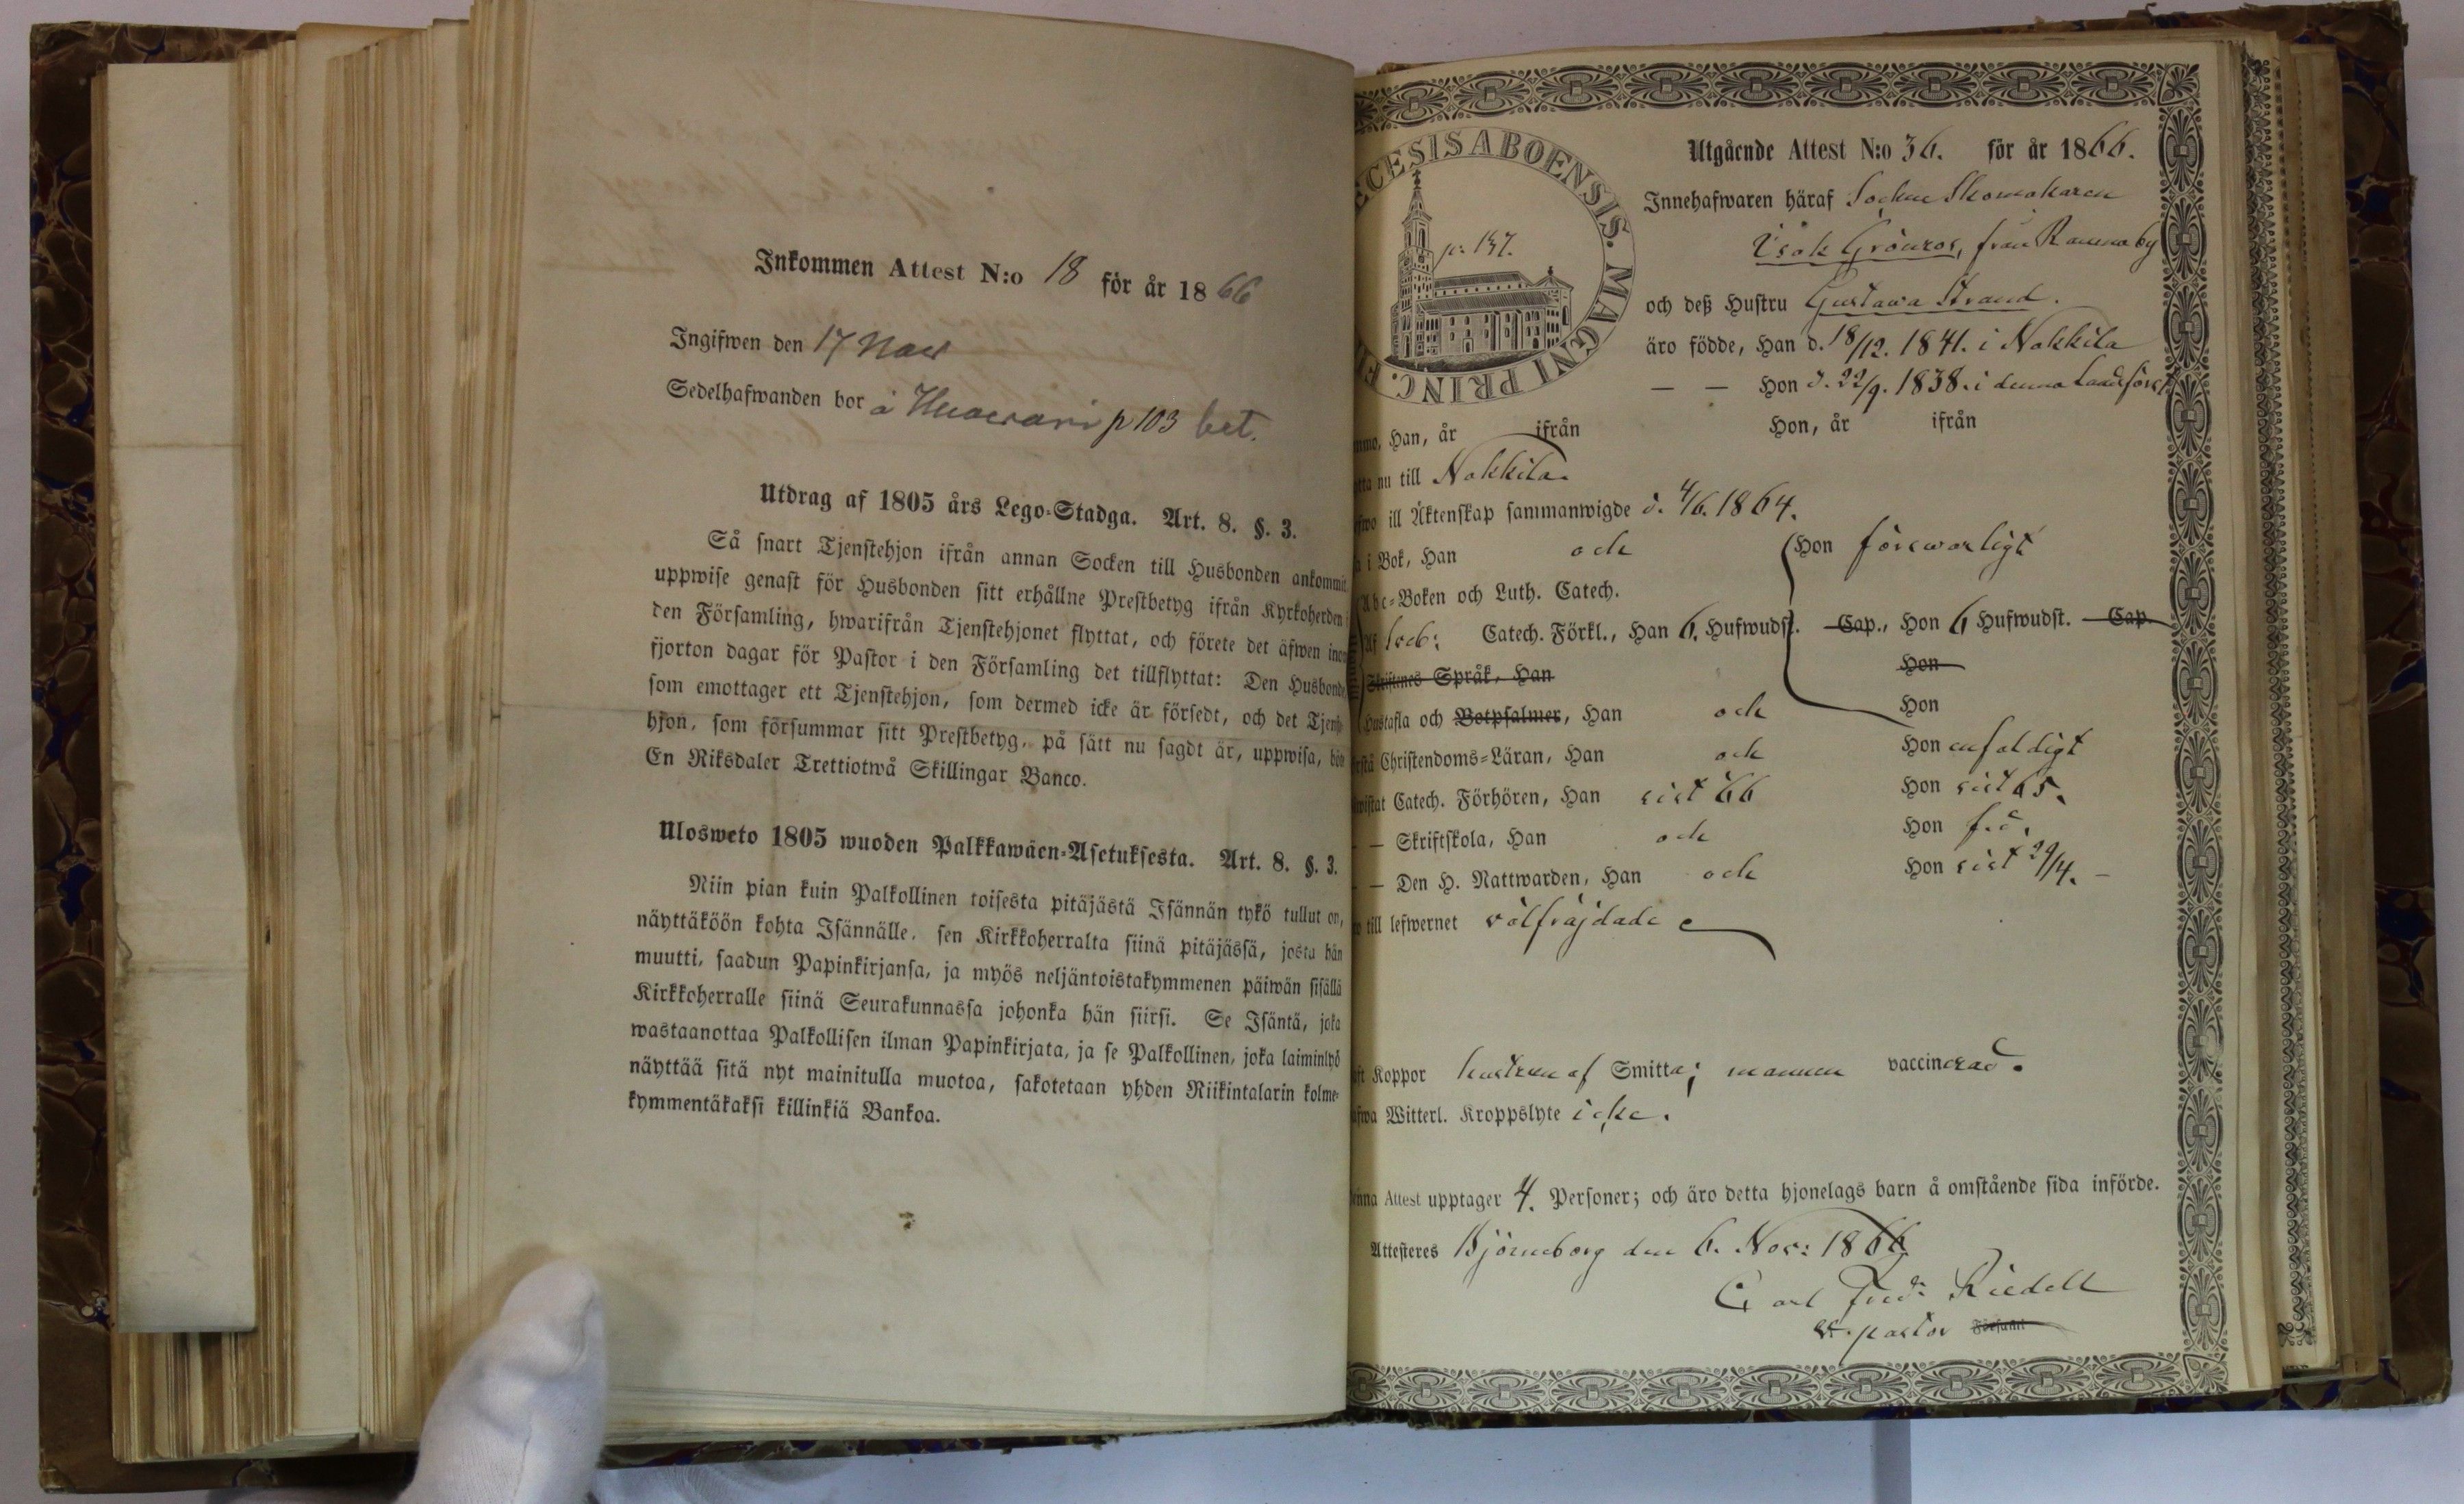 Inkommen Attest N:o 18 för år 1866
Ingifwen den 17 Nov
Sedelhafwanden bor å p 103 bet.
Utdrag af 1805 års Lego-Stadga. Art. 8. §. 3.
Så snart Tjenstehjon ifrån annan Socken till Husbonden ankommit
uppwise genast för Husbonden sitt erhållne Prestbetyg ifrån Kyrkoherden i
den Församling, hwarifrån Tjenstehjonet flyttat, och förete det äfwen inom
fjorton dagar för Pastor i den Församling det tillflyttat: Den Husbonde,
som emottager ett Tjenstehjon, som dermed icke är försedt, och det Tjenste-
hjon, som försummar sitt Prestbetyg, på sätt nu sagdt är, uppwisa, böte
En Riksdaler Trettiotwå Skillingar Banco.
Ulosweto 1805 wuoden Palkkawäen-Asetuksesta. Art. 8. §. 3.
Niin pian kuin Palkollinen toisesta pitäjästä Isännän tykö tullut on,
näyttäköön kohta Isännälle, sen Kirkkoherralta siinä pitäjässä, josta hän
muutti, saadun Papinkirjansa, ja myös neljäntoistakymmenen päiwän sisällä
Kirkkoherralle siinä Seurakunnassa johonka hän siirsi. Se Isäntä, joka
wastaanottaa Palkollisen ilman Papinkirjata, ja se Palkollinen, joka laiminlyö
näyttää sitä nyt mainitulla muotoa, sakotetaan yhden Riikintalarin kolme-
kymmentäkaksi killinkiä Bankoa.
ECESIS ABOENSIS. MAGNI PRINC. FI
p: 137.
Utgående Attest N:o 36. för år 1866.
Innehafwaren häraf Sockne Skomakaren
Isak Grönros, från Ranma by
och deß Hustru Gustava Strand.
äro födde, Han d. 18/12. 1841. i Nakkila
— — Hon d. 22/9. 1838. i denna Landsförs:
mmo, Han, år ifrån Hon, år ifrån
tta nu till Nakkila.
fwo ill Äktenskap sammanwigde d. 4/6. 1864.
i Bok, Han och Hon förswarligt
Abc-Boken och Luth. Catech.
Af Catech. Förkl., Han 6. Hufwudst. Cap., Hon 6 Hufwudst. Cap.
Skriftenes Språk, Han Hon
Hustafla och Botpsalmer, Han och Hon
rstå Christendoms-Läran, Han och Hon enfaldigt
wistat Catech. Förhören, Han sist 66 Hon sist 65.
— Skriftskola, Han och Hon f. d.
— Den H. Nattwarden, Han och Hon sist 29/4. –
till lefwernet välfräjdade
ft Koppor hustrun af Smitta; mannen vaccinerad.
afwa Witterl. Kroppslyte icke.
enna Attest upptager 4. Personer; och äro detta hjonelags barn å omstående sida införde.
Attesteres Björneborg den 6. Nov: 1866
Carl Fredr Riedell
v. pastor Församl